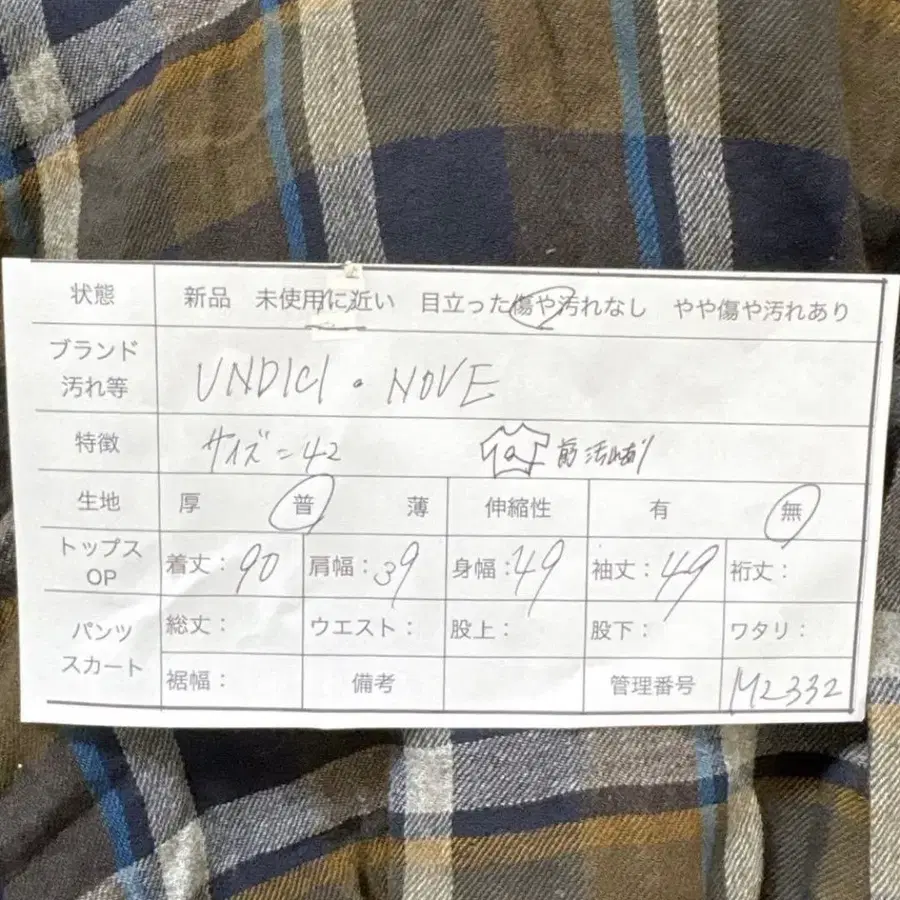 状態 新品 未使用に近い 目立った傷や汚れなし やや傷や汚れあり
ブランド
汚れ等 UNDICI・NOVE
特徴 サイズ=42 前 汚れあり
生地 厚 普 薄 伸縮性 有 無
トップス
OP 着丈:90 肩幅:39 身幅:49 袖丈:49 裄丈:
パンツ
スカート 総丈: ウエスト: 股上: 股下: ワタリ:
裾幅: 備考 管理番号 M2332